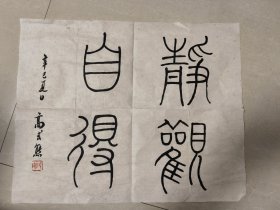 靜觀
自得
辛巳夏日
高式熊